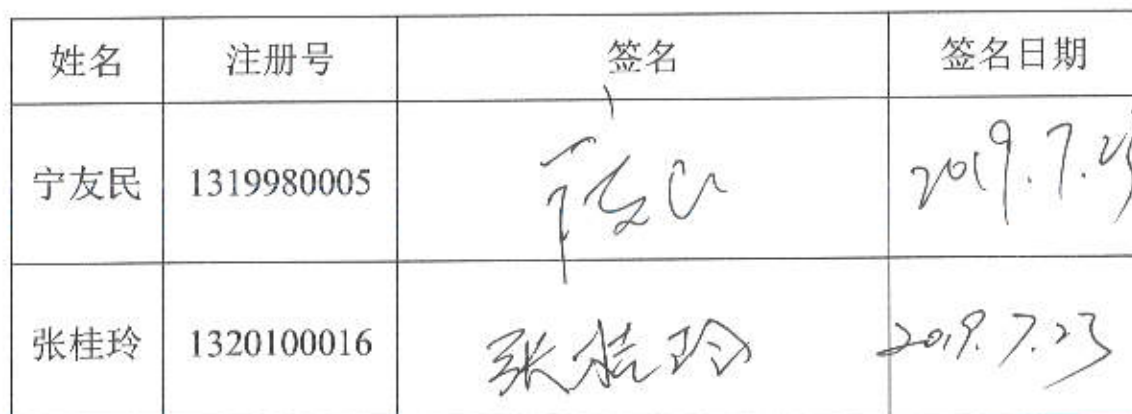 姓名 注册号 签名 签名日期
宁友民 1319980005 宁友民 2019.7.23
张桂玲 1320100016 张桂玲 2019.7.23